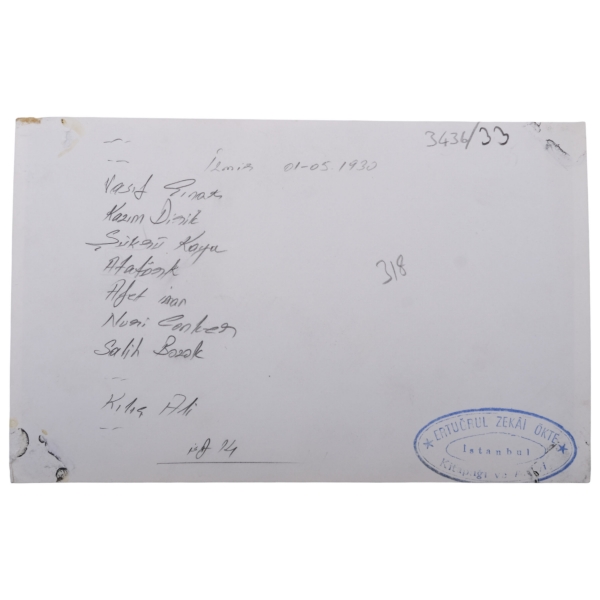 3436/33
İzmir 01-05.1930
Vasıf Çınar
Kazım Dirik
Şükrü Kaya
Atatürk
Afet inan
Nuri Conker
Salih Bozok
318
Kılıç Ali
ERTUĞRUL ZEKÂİ ÖKTE
İstanbul